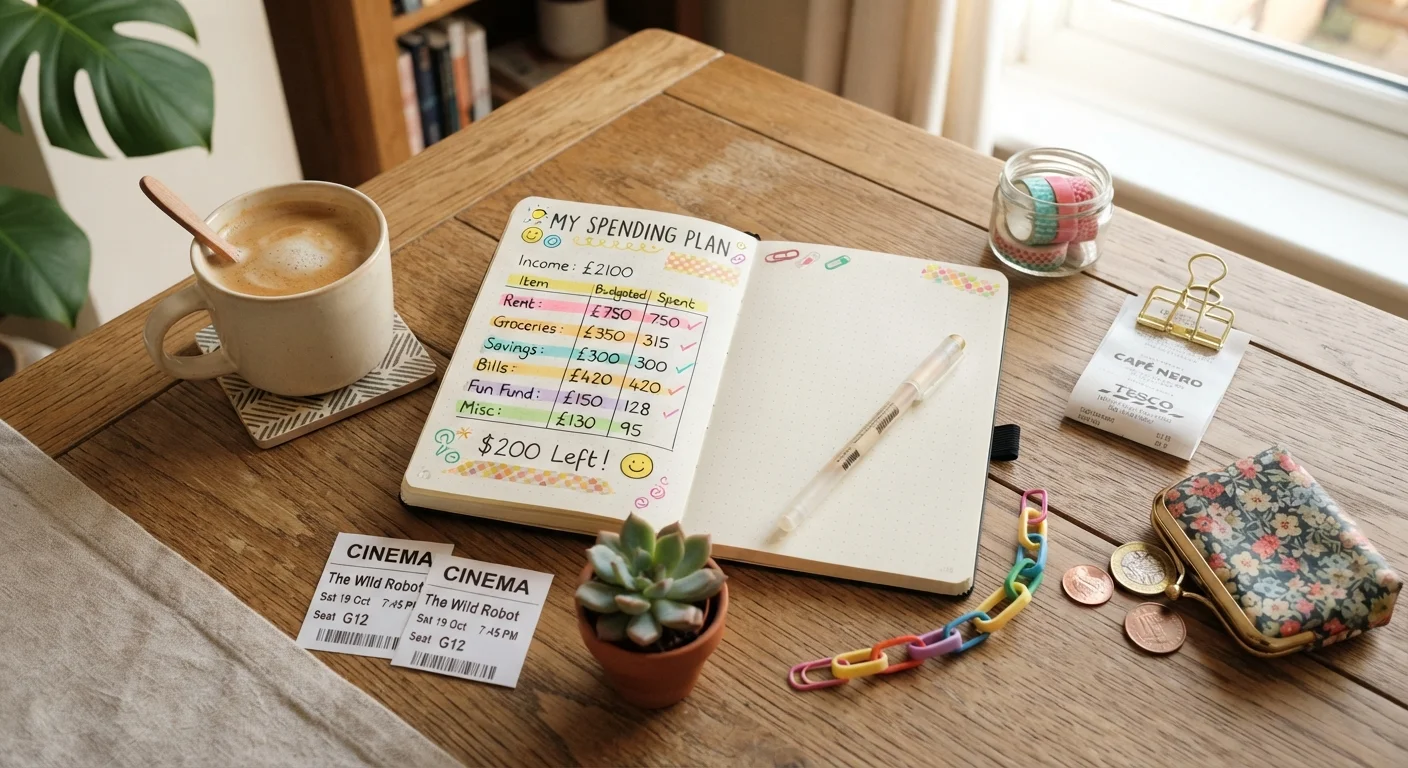 MY SPENDING PLAN
Income: £2100
Item Budgoted Spent
Rent: £750 750 ✓
Groceries: £350 315 ✓
Savings: £300 300 ✓
Bills: £420 420 ✓
Fun Fund: £150 128 ✓
Misc: £130 95
$200 Left!
CAFÉ NERO
TESCO
CINEMA
The Wild Robot
Sat 19 Oct 7:45 P
Seat G12
CINEMA
The Wild Robot
Sat 19 Oct 7:45 PM
Seat G12